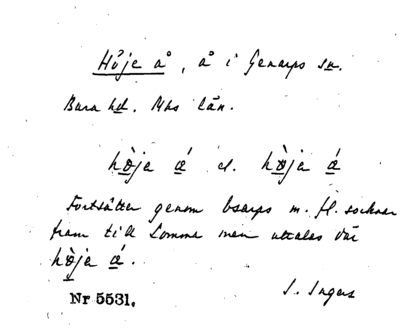 Höje å, å i Genarps sn.
Bara hd. Mhs län.
hø̀ja ǽ el. hø̀ja ǽ
Fortsätter genom Esarps m. fl. socknar
fram till Lomma men uttalas där
hø̀ja ǽ.
S. Ingers
Nr 5531.